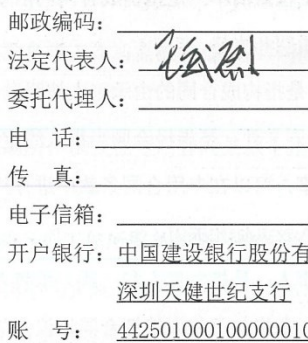 邮政编码：
法定代表人：
委托代理人：
电 话：
传 真：
电子信箱：
开户银行：中国建设银行股份有
深圳天健世纪支行
账 号：44250100010000001